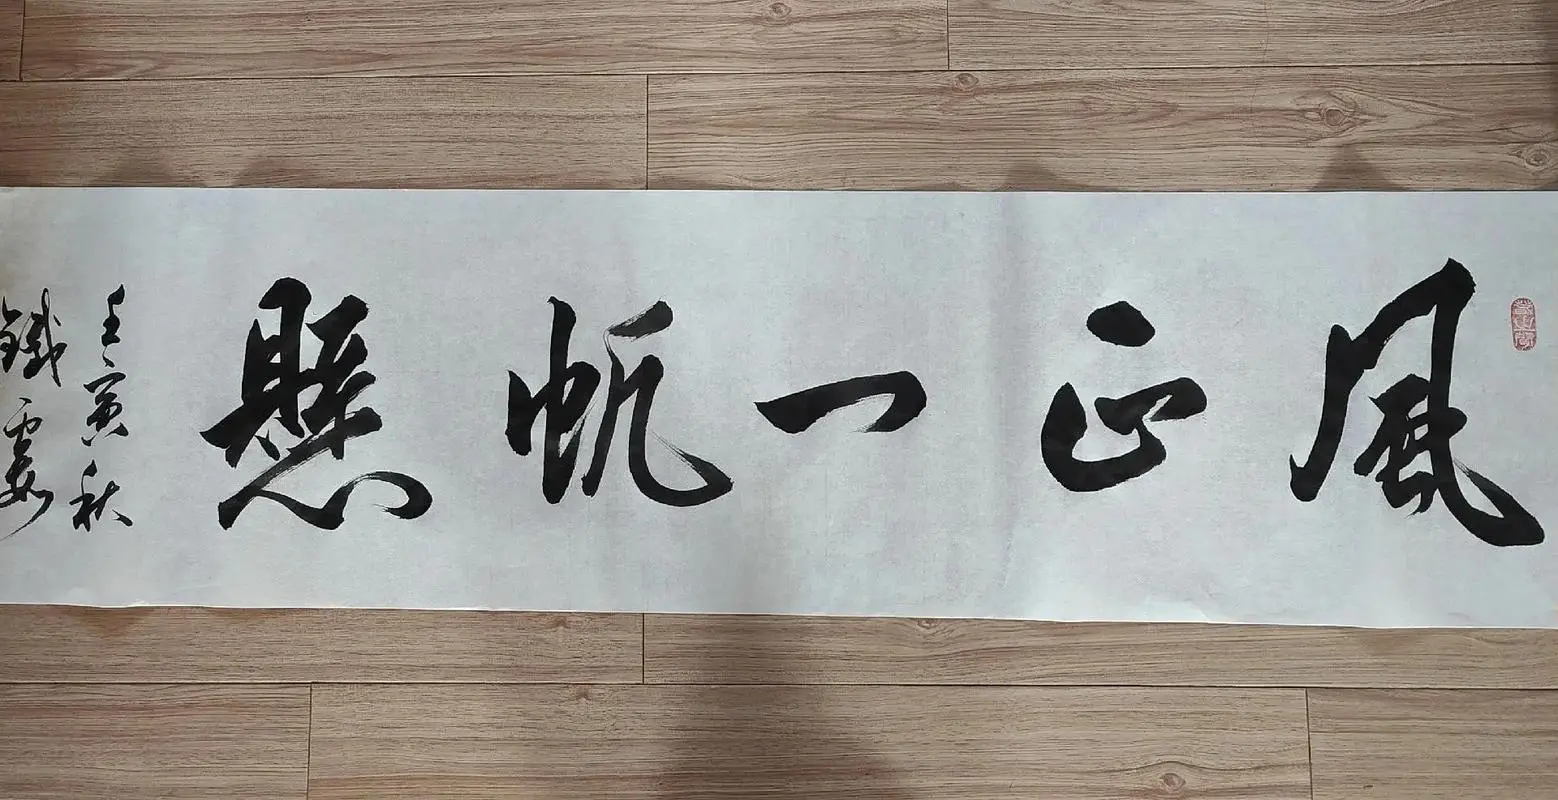 風正一帆懸
壬寅秋
鐵霞